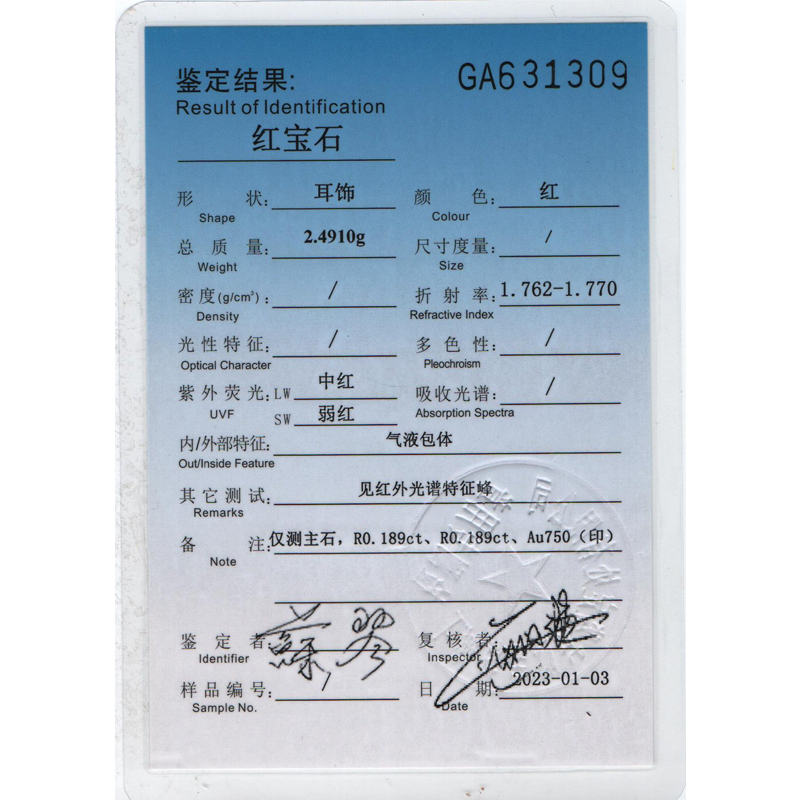 鉴定结果: GA631309
Result of Identification
红宝石
形 状: 耳饰 颜 色: 红
Shape Colour
总 质 量: 2.4910g 尺寸度量: /
Weight Size
密度(g/cm³): / 折 射 率: 1.762-1.770
Density Refractive Index
光性特征: / 多 色 性: /
Optical Character Pleochroism
紫外荧光: LW 中红 吸收光谱: /
UVF SW 弱红 Absorption Spectra
内/外部特征: 气液包体
Out/Inside Feature
其它测试: 见红外光谱特征峰
Remarks
备 注: 仅测主石, R0.189ct、R0.189ct、Au750（印）
Note
鉴 定 者: 复 核 者:
Identifier Inspector
样品编号: / 日 期: 2023-01-03
Sample No. Date